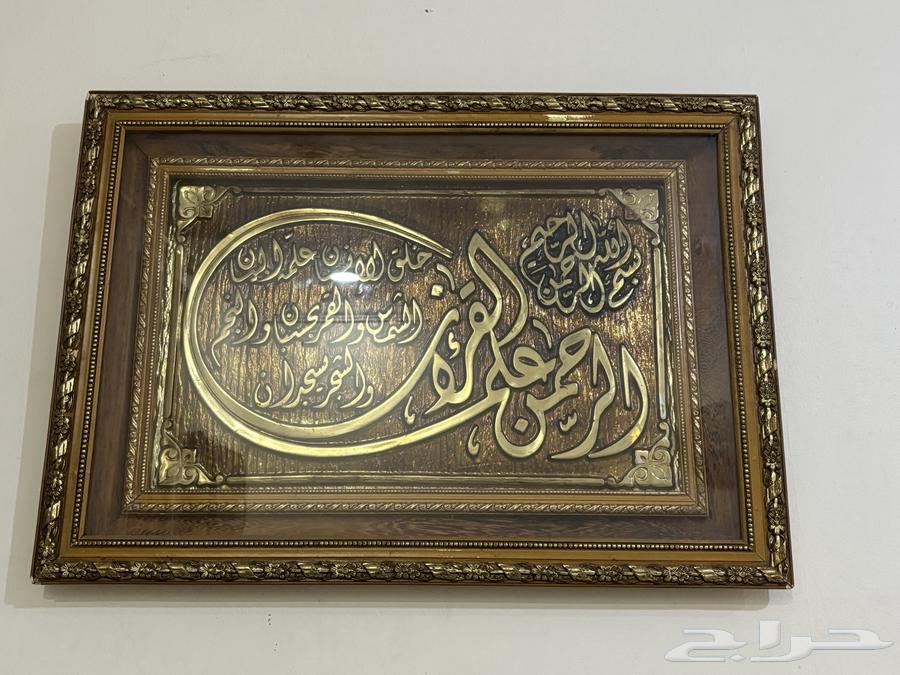 بسم الله الرحمن الرحيم
الرحمن علم القرءان
خلق الإنسن علمه البيان
الشمس والقمر بحسبان والنجم
والشجر يسجدان
حراج